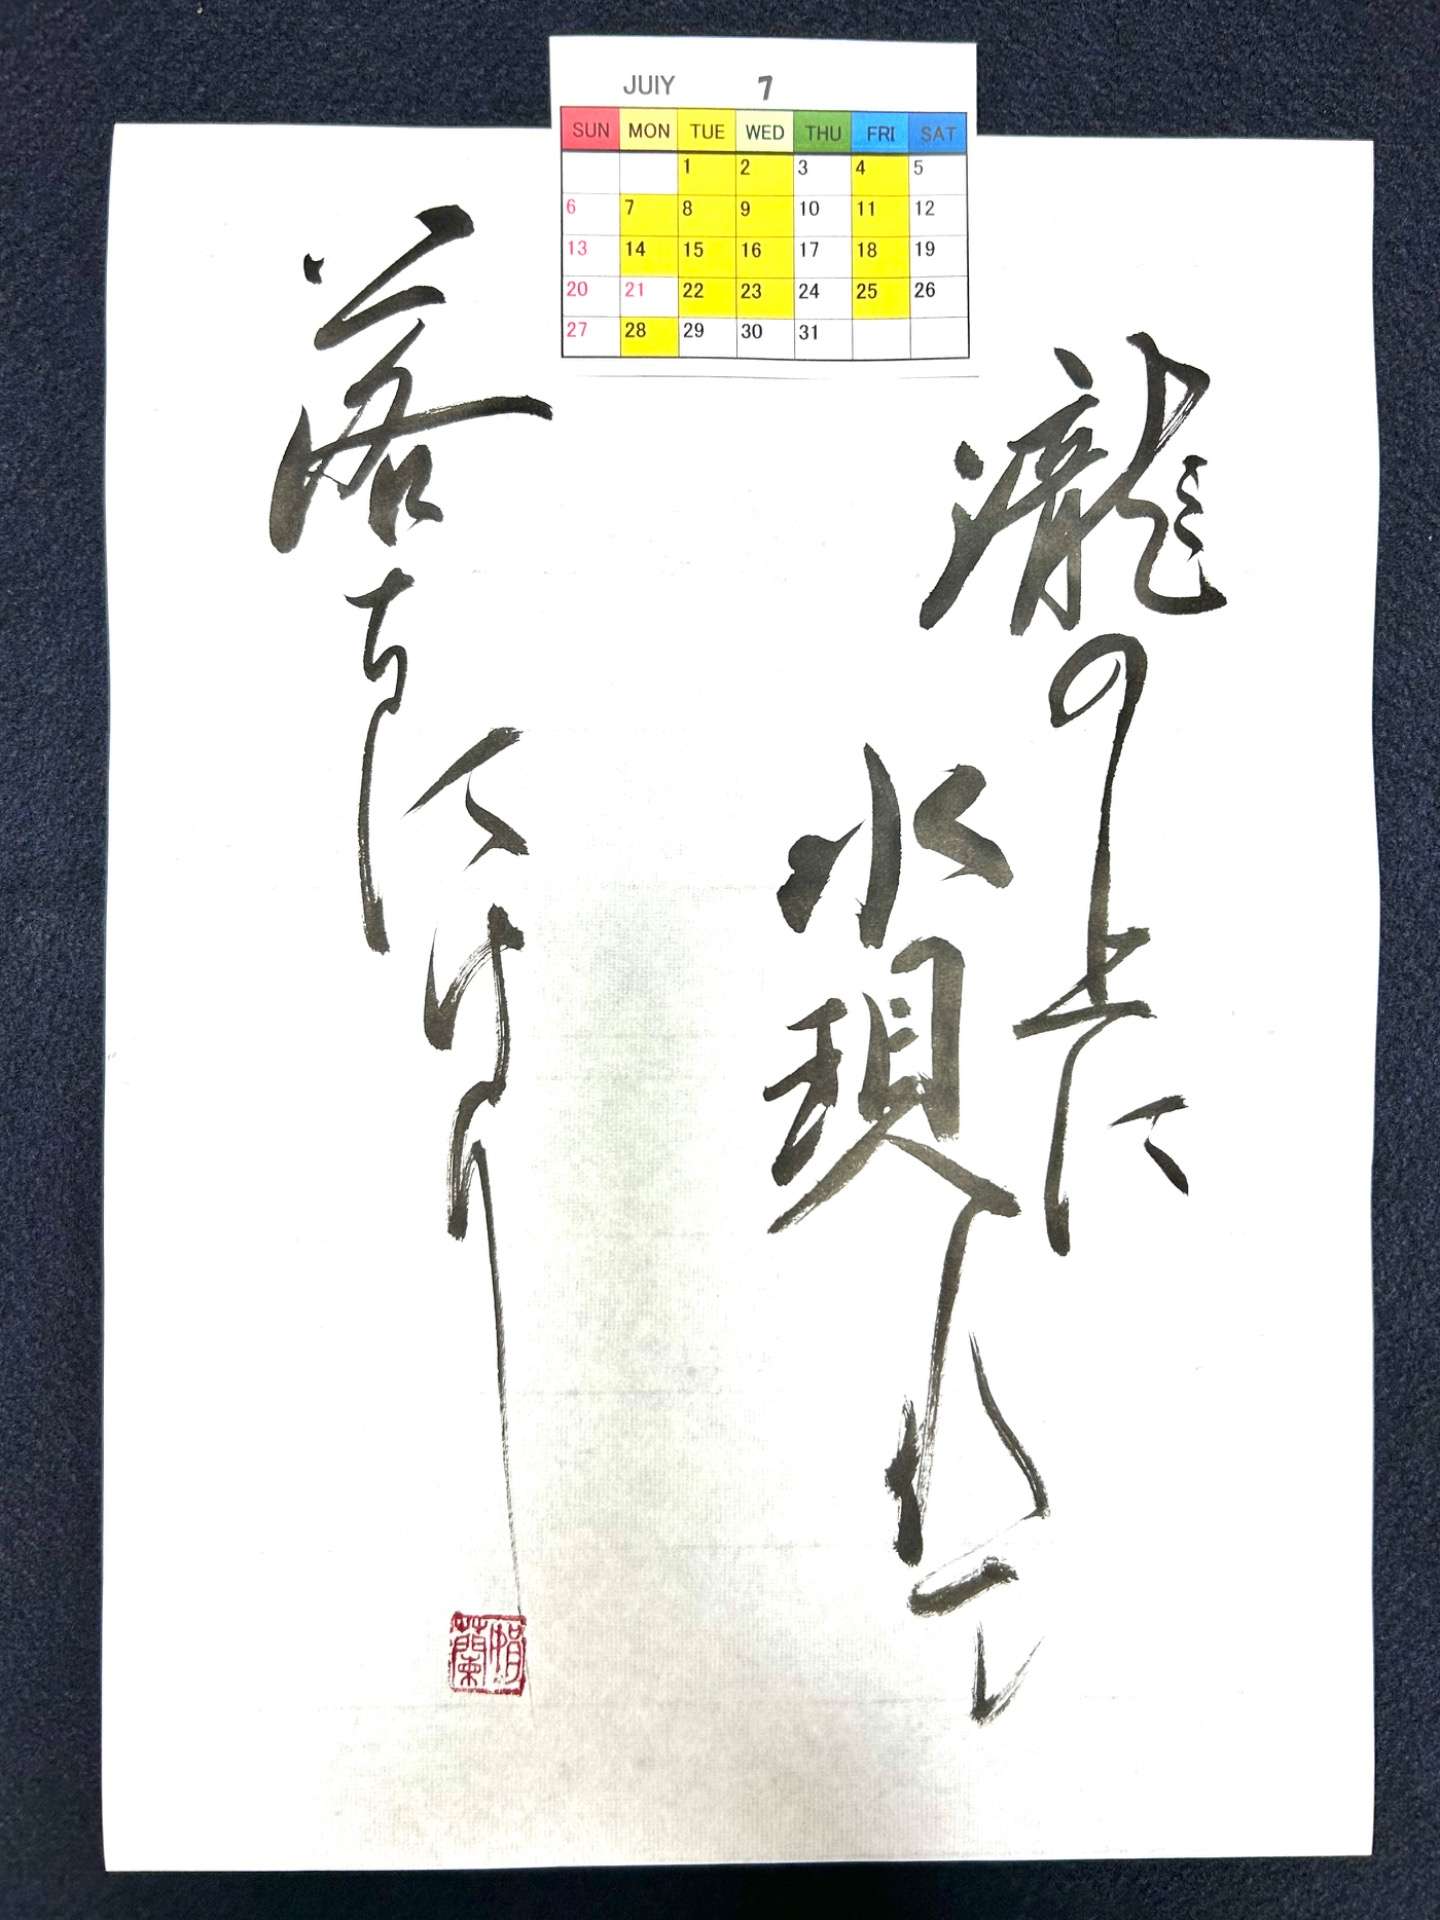 JUIY 7
SUN MON TUE WED THU FRI SAT
1 2 3 4 5
6 7 8 9 10 11 12
13 14 15 16 17 18 19
20 21 22 23 24 25 26
27 28 29 30 31
瀧の上に
水現れて
落ちにけり
蘭